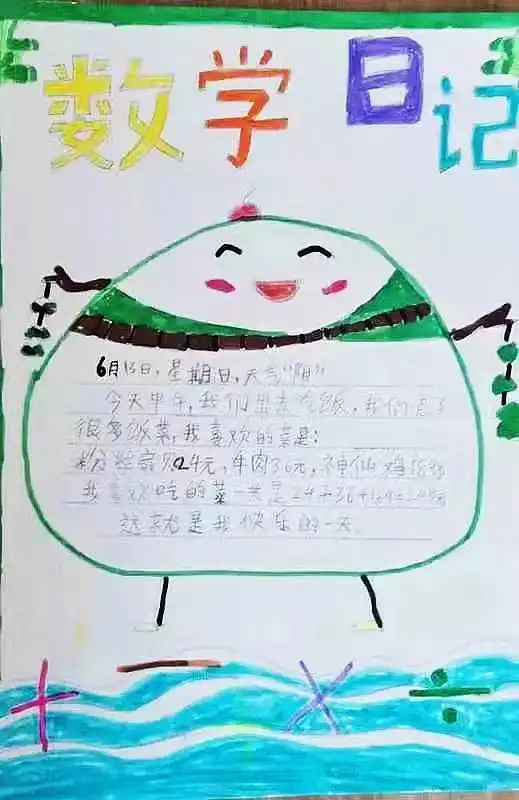 数学日记
6月13日，星期日，天气“阴”
今天中午，我们出去吃饭，我们点了
很多饭菜，我喜欢的菜是：
粉丝 24元，牛肉36元，神仙鸡
我喜欢吃的菜一共是24+36+
这就是我快乐的一天。
+ − × ÷